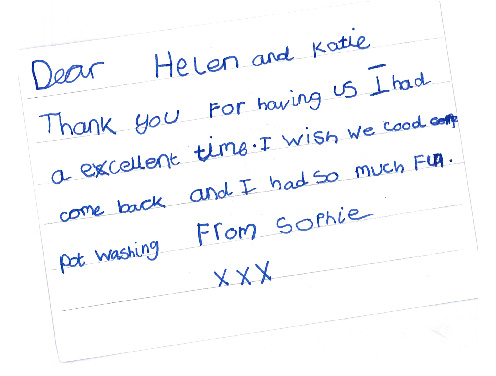 Dear Helen and Katie
Thank you For having us I had
a excellent time. I wish we cood come
come back and I had so much Fun.
pot washing From Sophie
xxx